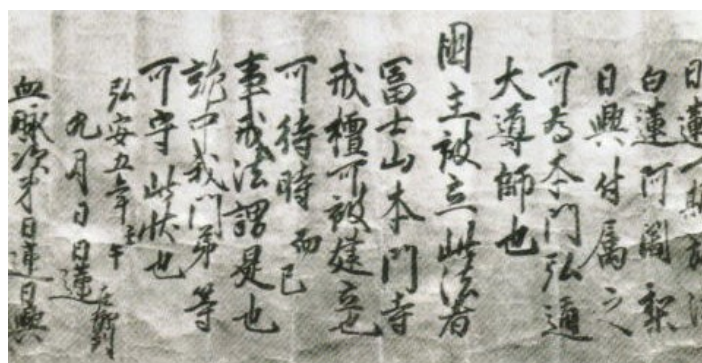 日蓮一期弘法
白蓮阿闍梨
日興付属之
可為本門弘通
大導師也
國主被立此法者
冨士山本門寺
戒檀可被建立也
可待時而已
事戒法謂是也
就中我門弟等
可守此状也
弘安五年壬午
九月日日蓮在御判
血脉次第日蓮日興